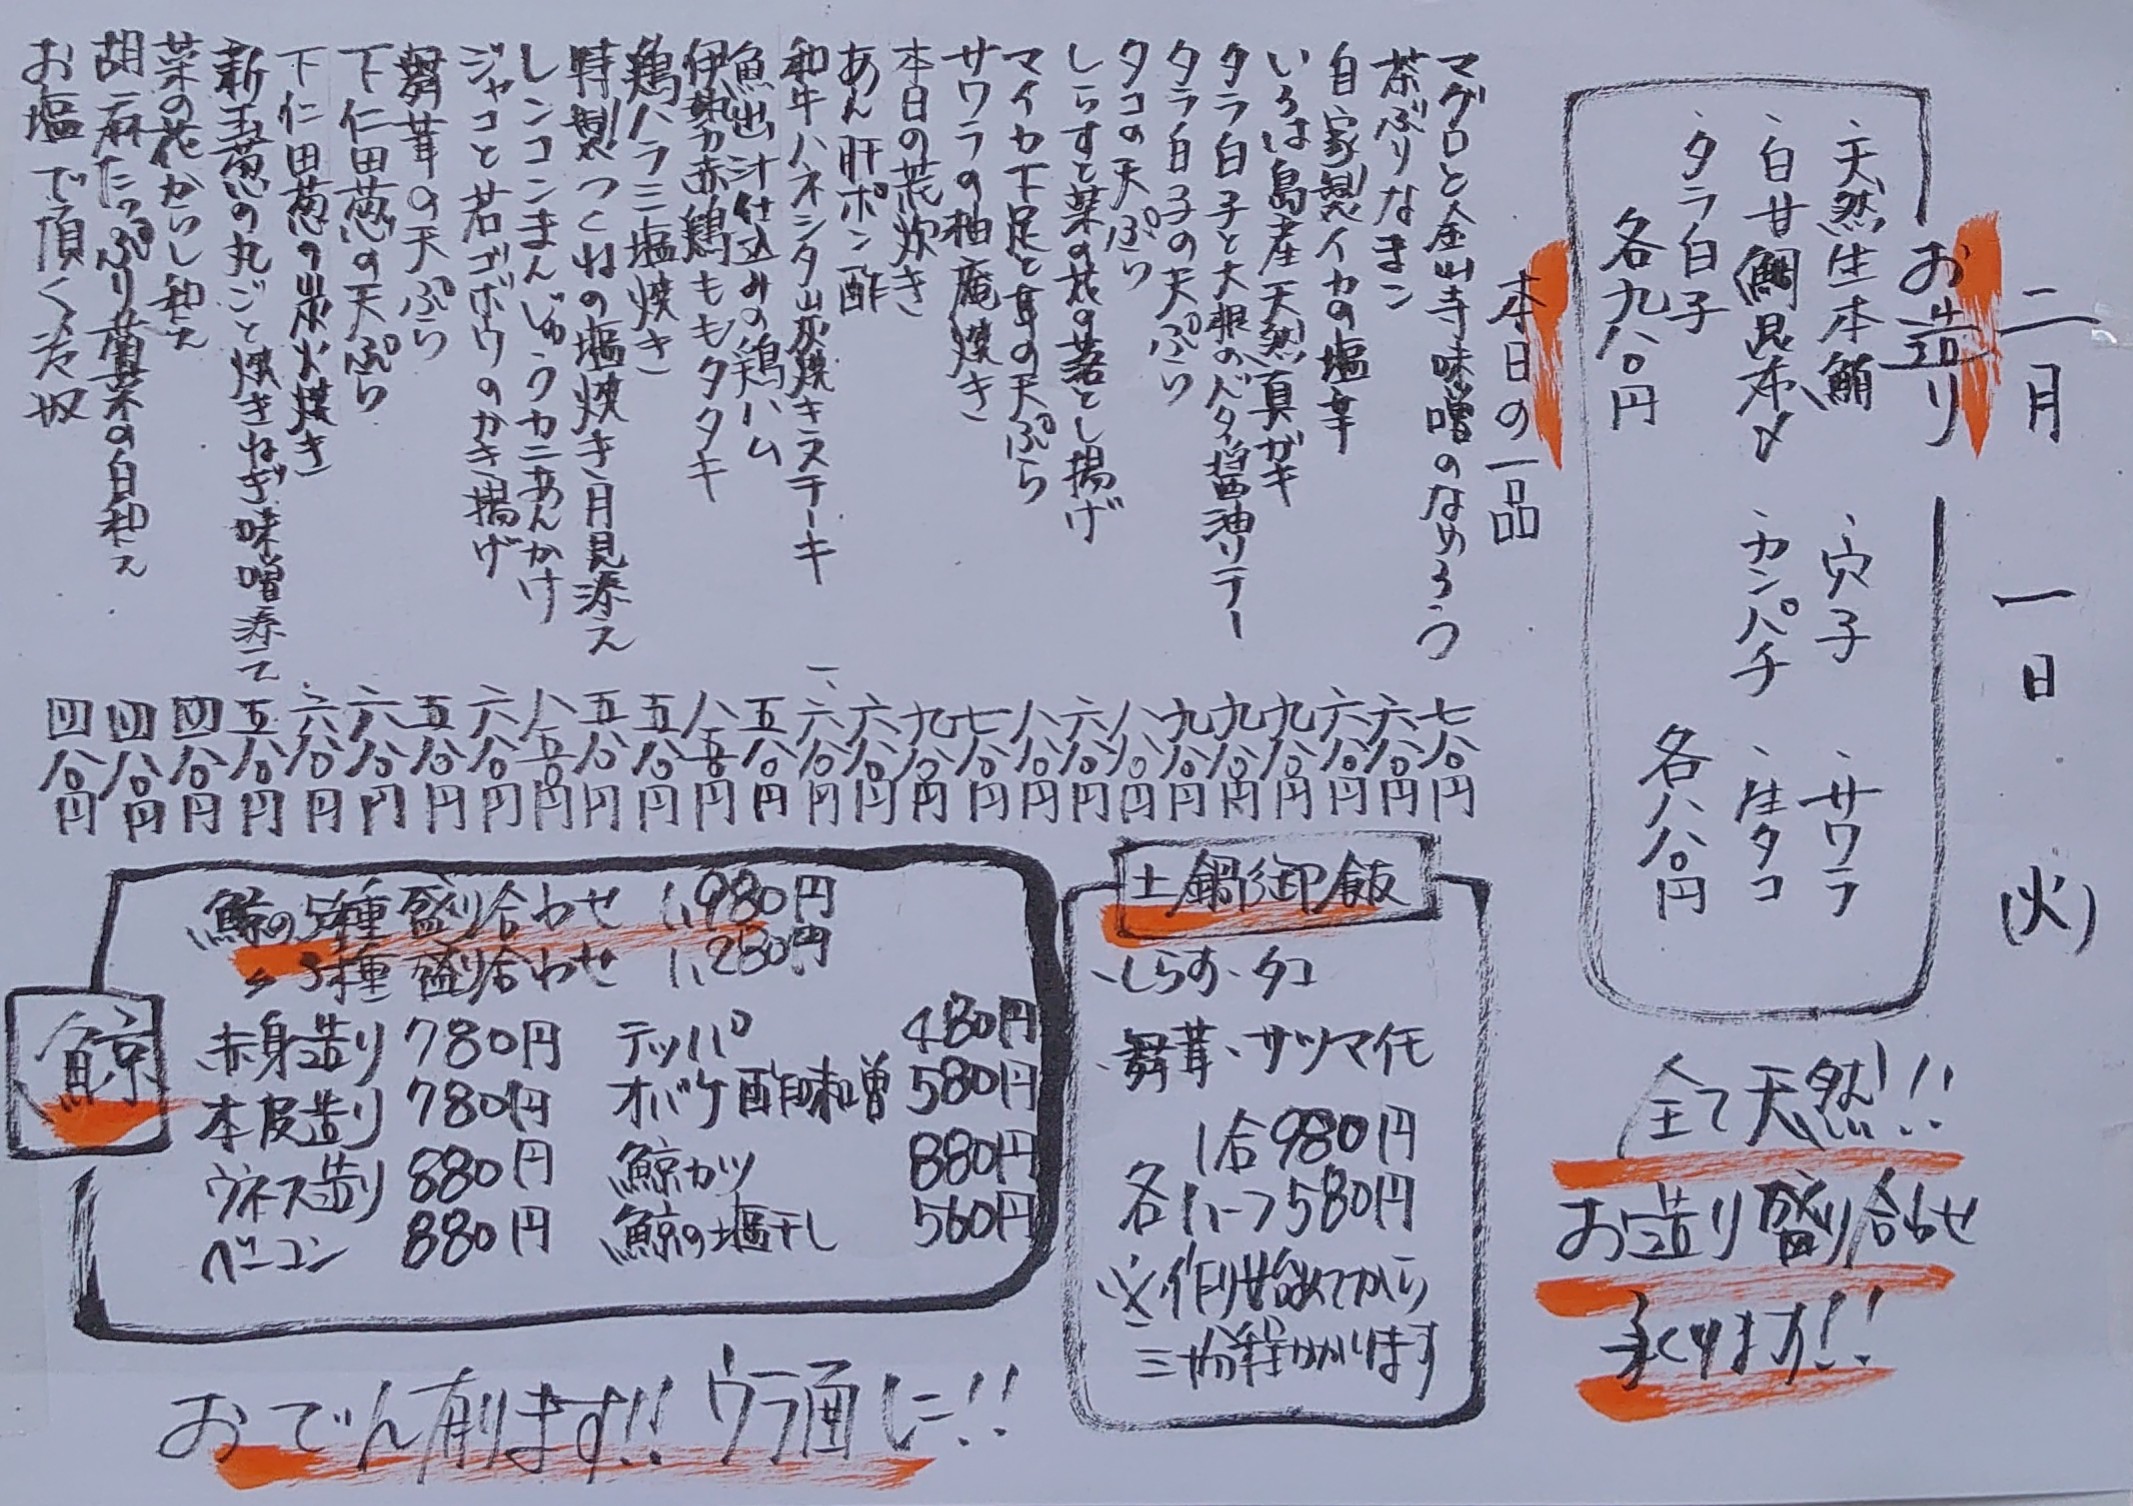 二月 一日 (火)
お造り
、天然生本鮪 、穴子 、サワラ
、白甘鯛昆布〆 、カンパチ 、生タコ
、タラ白子
各九八〇円 各八八〇円
全て天然!!
お造り盛り合わせ
承ります!!
本日の一品
マグロと金山寺味噌のなめろう 七八〇円
茶ぶりなまこ 六八〇円
自家製イカの塩辛 六八〇円
いろは島産天然真ガキ 九八〇円
タラ白子と大根のバター醤油ソテー 九八〇円
タラ白子の天ぷら 九八〇円
タコの天ぷら 八八〇円
しらすと菜の花の落とし揚げ 六八〇円
マイカ下足と茸の天ぷら 八八〇円
サワラの柚庵焼き 七八〇円
本日の荒炊き 九八〇円
あん肝ポン酢 六八〇円
和牛ハネシタ炭焼きステーキ 一、六八〇円
魚出汁仕込みの鶏ハム 五八〇円
伊勢赤鶏ももタタキ 八五〇円
鶏ハラミ塩焼き 五八〇円
特製つくねの塩焼き月見添え 五八〇円
レンコンまんじゅうカニあんかけ 八五〇円
ジャコと若ゴボウのかき揚げ 六八〇円
舞茸の天ぷら 五八〇円
下仁田葱の天ぷら 六八〇円
下仁田葱の炭火焼き 六八〇円
新玉葱の丸ごと焼きねぎ味噌添え 五八〇円
菜の花からし和え 四八〇円
胡麻たっぷり菜の白和え 四八〇円
お塩で頂く冷奴 四八〇円
土鍋御飯
、しらす 、タコ
、舞茸 、サツマイモ
1合980円
各ハーフ580円
※作り始めてから
三十分程かかります
鯨
鯨の5種盛り合わせ 1,980円
〃 3種盛り合わせ 1,280円
赤身造り 780円 テッパ 480円
本皮造り 780円 オバケ酢味噌 580円
ウネス造り 880円 鯨カツ 880円
ベーコン 880円 鯨の塩干し 560円
おでん有ります!! ウラ面に!!